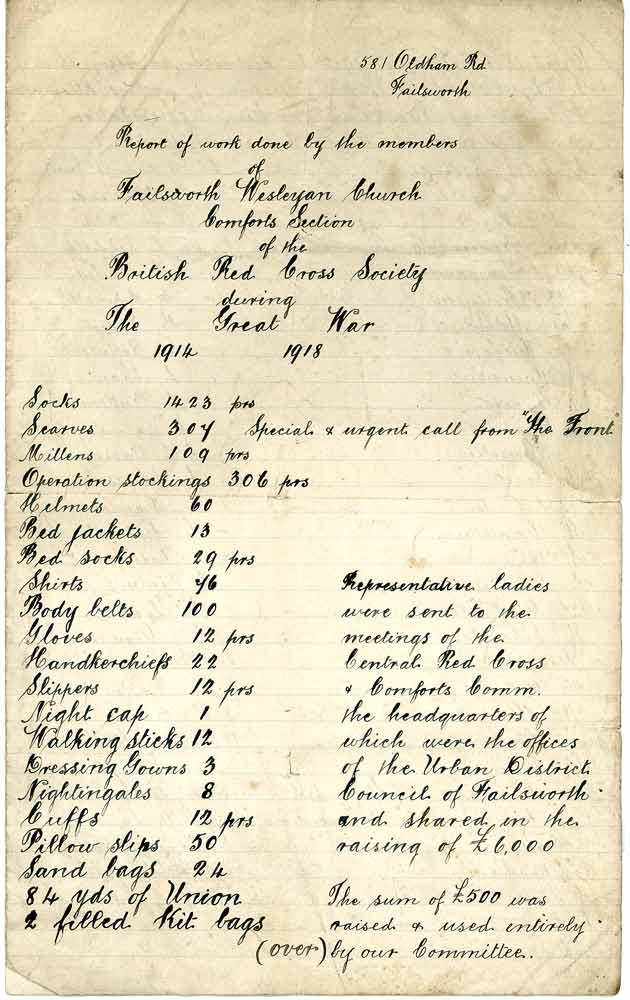 581 Oldham Rd
Failsworth
Report of work done by the members
of
Failsworth Wesleyan Church
Comforts Section
of the
British Red Cross Society
during
The Great War
1914 1918
Socks 1423 prs
Scarves 307 Special & urgent call from "The Front"
Mittens 109 prs
Operation stockings 306 prs
Helmets 60
Bed jackets 13
Bed socks 29 prs
Shirts 76
Body belts 100
Gloves 12 prs
Handkerchiefs 22
Slippers 12 prs
Night cap 1
Walking sticks 12
Dressing Gowns 3
Nightingales 8
Cuffs 12 prs
Pillow slips 50
Sand bags 24
84 yds of Union
2 filled Kit bags
Representative ladies
were sent to the
meetings of the
Central Red Cross
& Comforts Comm.
the headquarters of
which were the offices
of the Urban District
Council of Failsworth
and shared in the
raising of £6,000
The sum of £500 was
raised & used entirely
by our Committee.
(over)